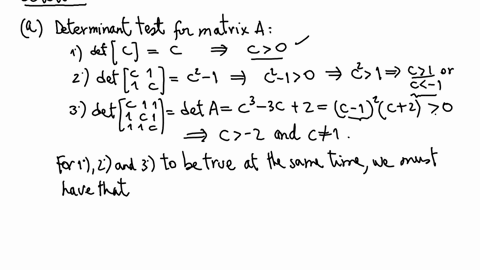 (a) Determinant test for matrix A:
1°) det [c] = c ⇒ c>0 ✓
2°) det [c 1; 1 c] = c²-1 ⇒ c²-1>0 ⇒ c²>1 ⇒ c>1 or c<-1
3°) det [c 1 1; 1 c 1; 1 1 c] = det A = c³-3c+2 = (c-1)²(c+2) > 0
⇒ c>-2 and c≠1.
For 1°), 2°) and 3°) to be true at the same time, we must
have that